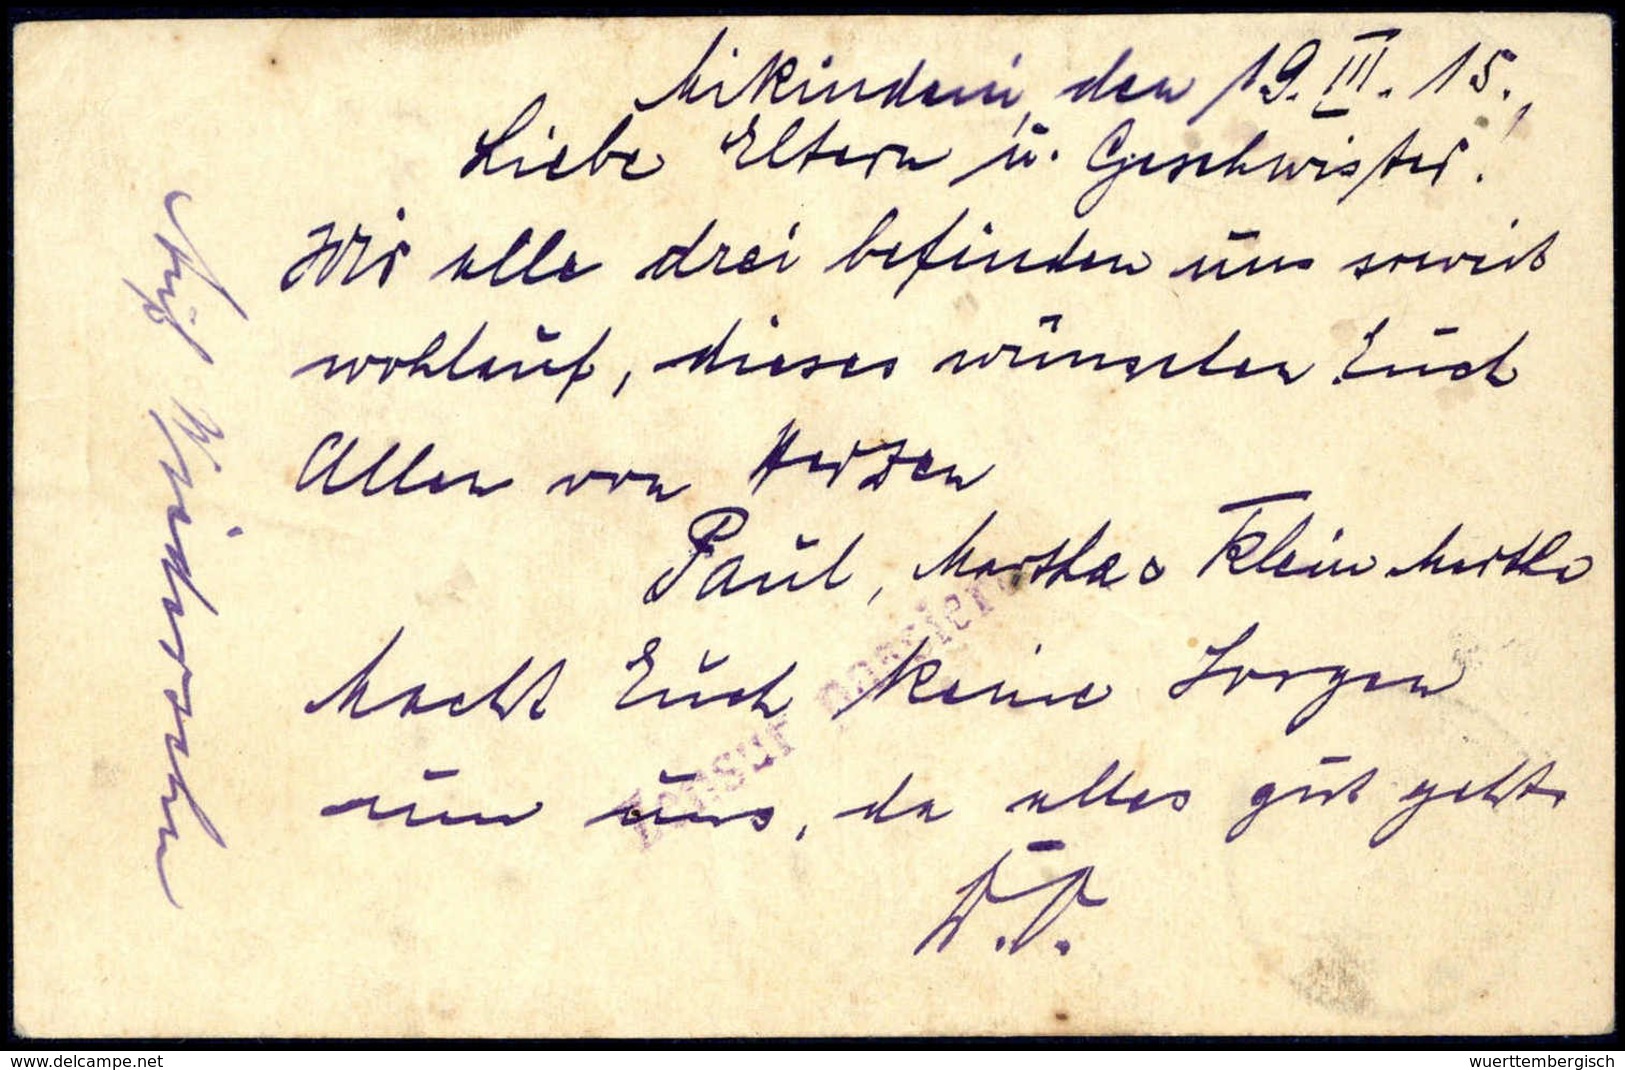 Mikindani, den 19. III. 15.,
Liebe Eltern u. Geschwister!
Wir alle drei befinden uns soweit
wohlauf, dieses wünschen Euch
Allen von Herzen
Paul, Martha & Klein Martha
Macht Euch keine Sorgen
um uns, da alles gut geht.
D.O.
Auf Wiedersehn
Zensur passiert
www.delcampe.net
wuerttembergisch